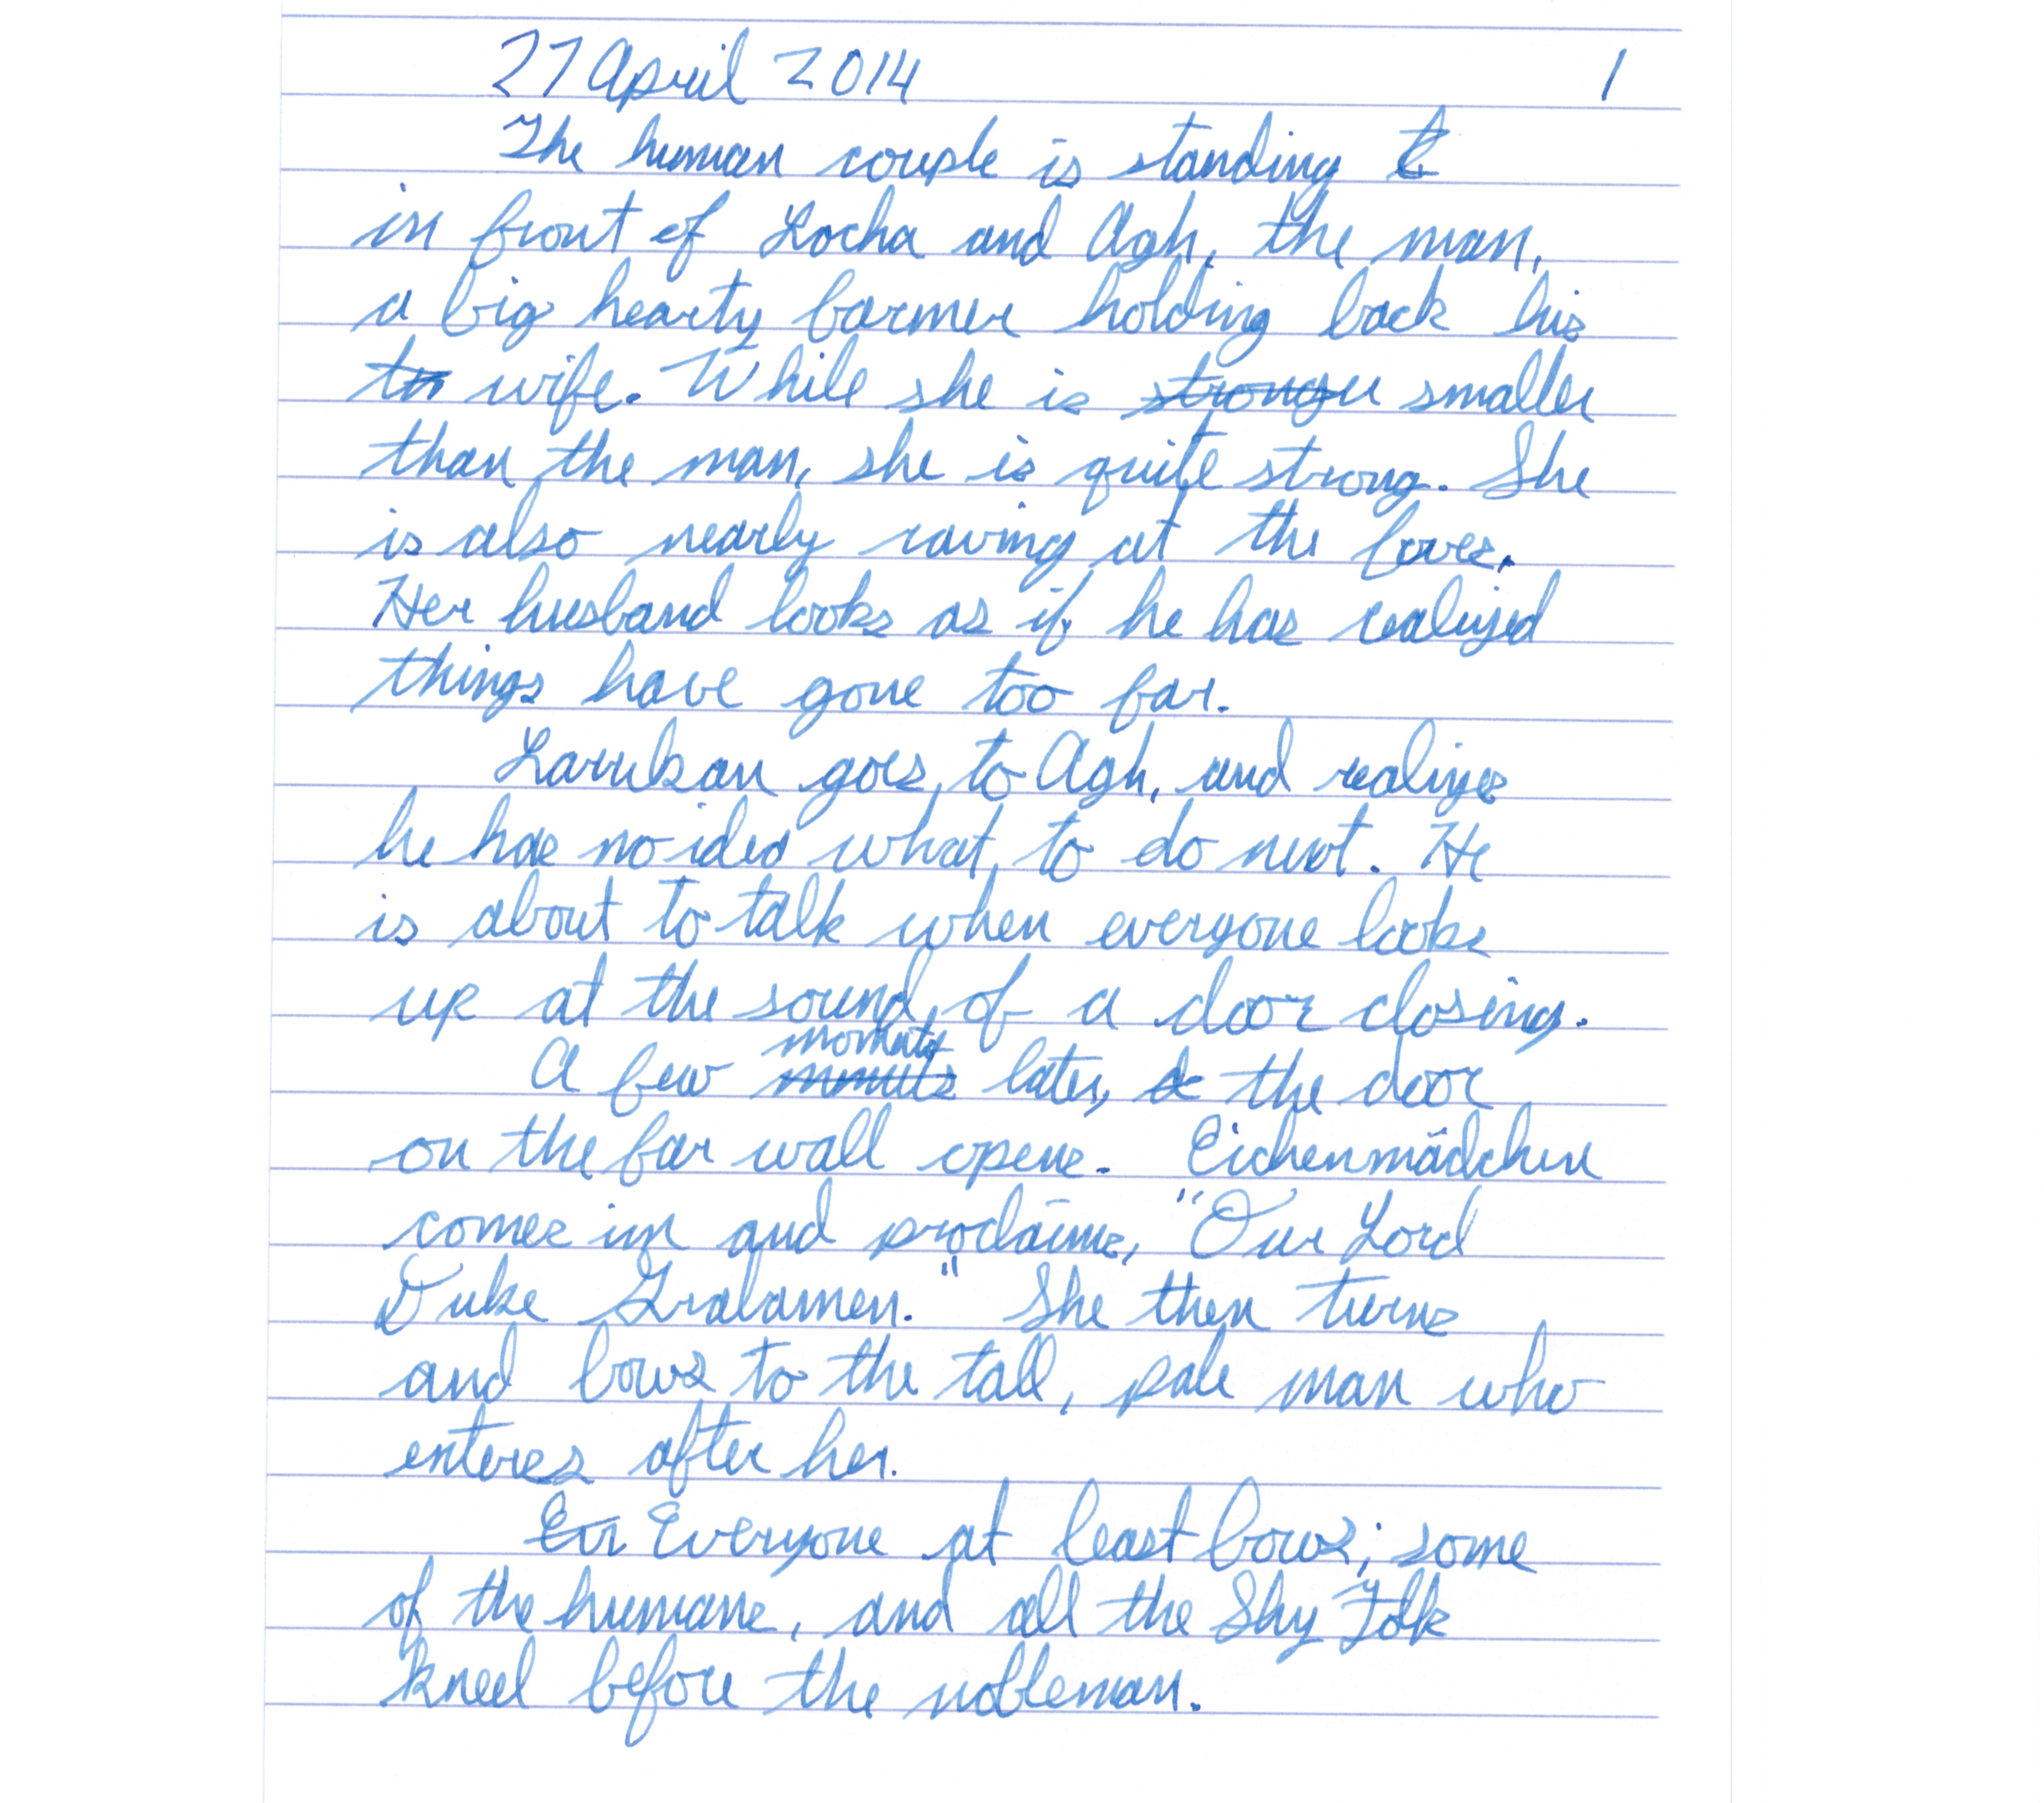 27 April 2014 1
The human couple is standing t
in front of Locha and Agh, the man,
a big hearty farmer holding back his
tn wife. While she is stronger smaller
than the man, she is quite strong. She
is also nearly raving at the foxes.
Her husband looks as if he has realized
things have gone too far.
Larukan goes to Agh, and realizes
he has no idea what to do next. He
is about to talk when everyone looks
up at the sound of a door closing.
moments
A few minutes later, a the door
on the far wall opens. Eichenmädchen
comes in and proclaims, "Our Lord
Duke Gralamen." She then turns
and bows to the tall, pale man who
enteres after her.
Evr Everyone at least bows; some
of the humans, and all the Shy Folk
kneel before the nobleman.